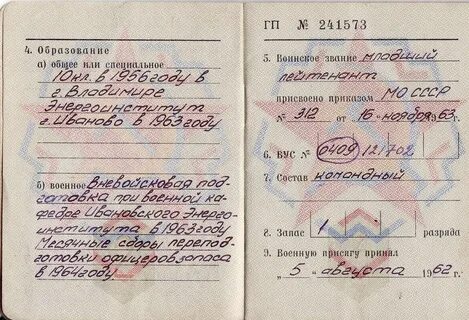 4. Образование
а) общее или специальное
10 кл. в 1956 году в
г. Владимире
Энергоинститут
г. Иваново в 1963 году
б) военное Вневойсковая под-
готовка при военной ка-
федре Ивановского Энерго-
института в 1963 году
Месячные сборы перепод-
готовки офицеров запаса
в 1964 году
ГП № 241573
5. Воинское звание младший
лейтенант
присвоено приказом МО СССР
№ 312 от 16 - ноября 1963 г.
6. ВУС № 0409 12/702
7. Состав командный
8. Запас 1 разряда
9. Военную присягу принял
„ 5 “ августа 1962 г.